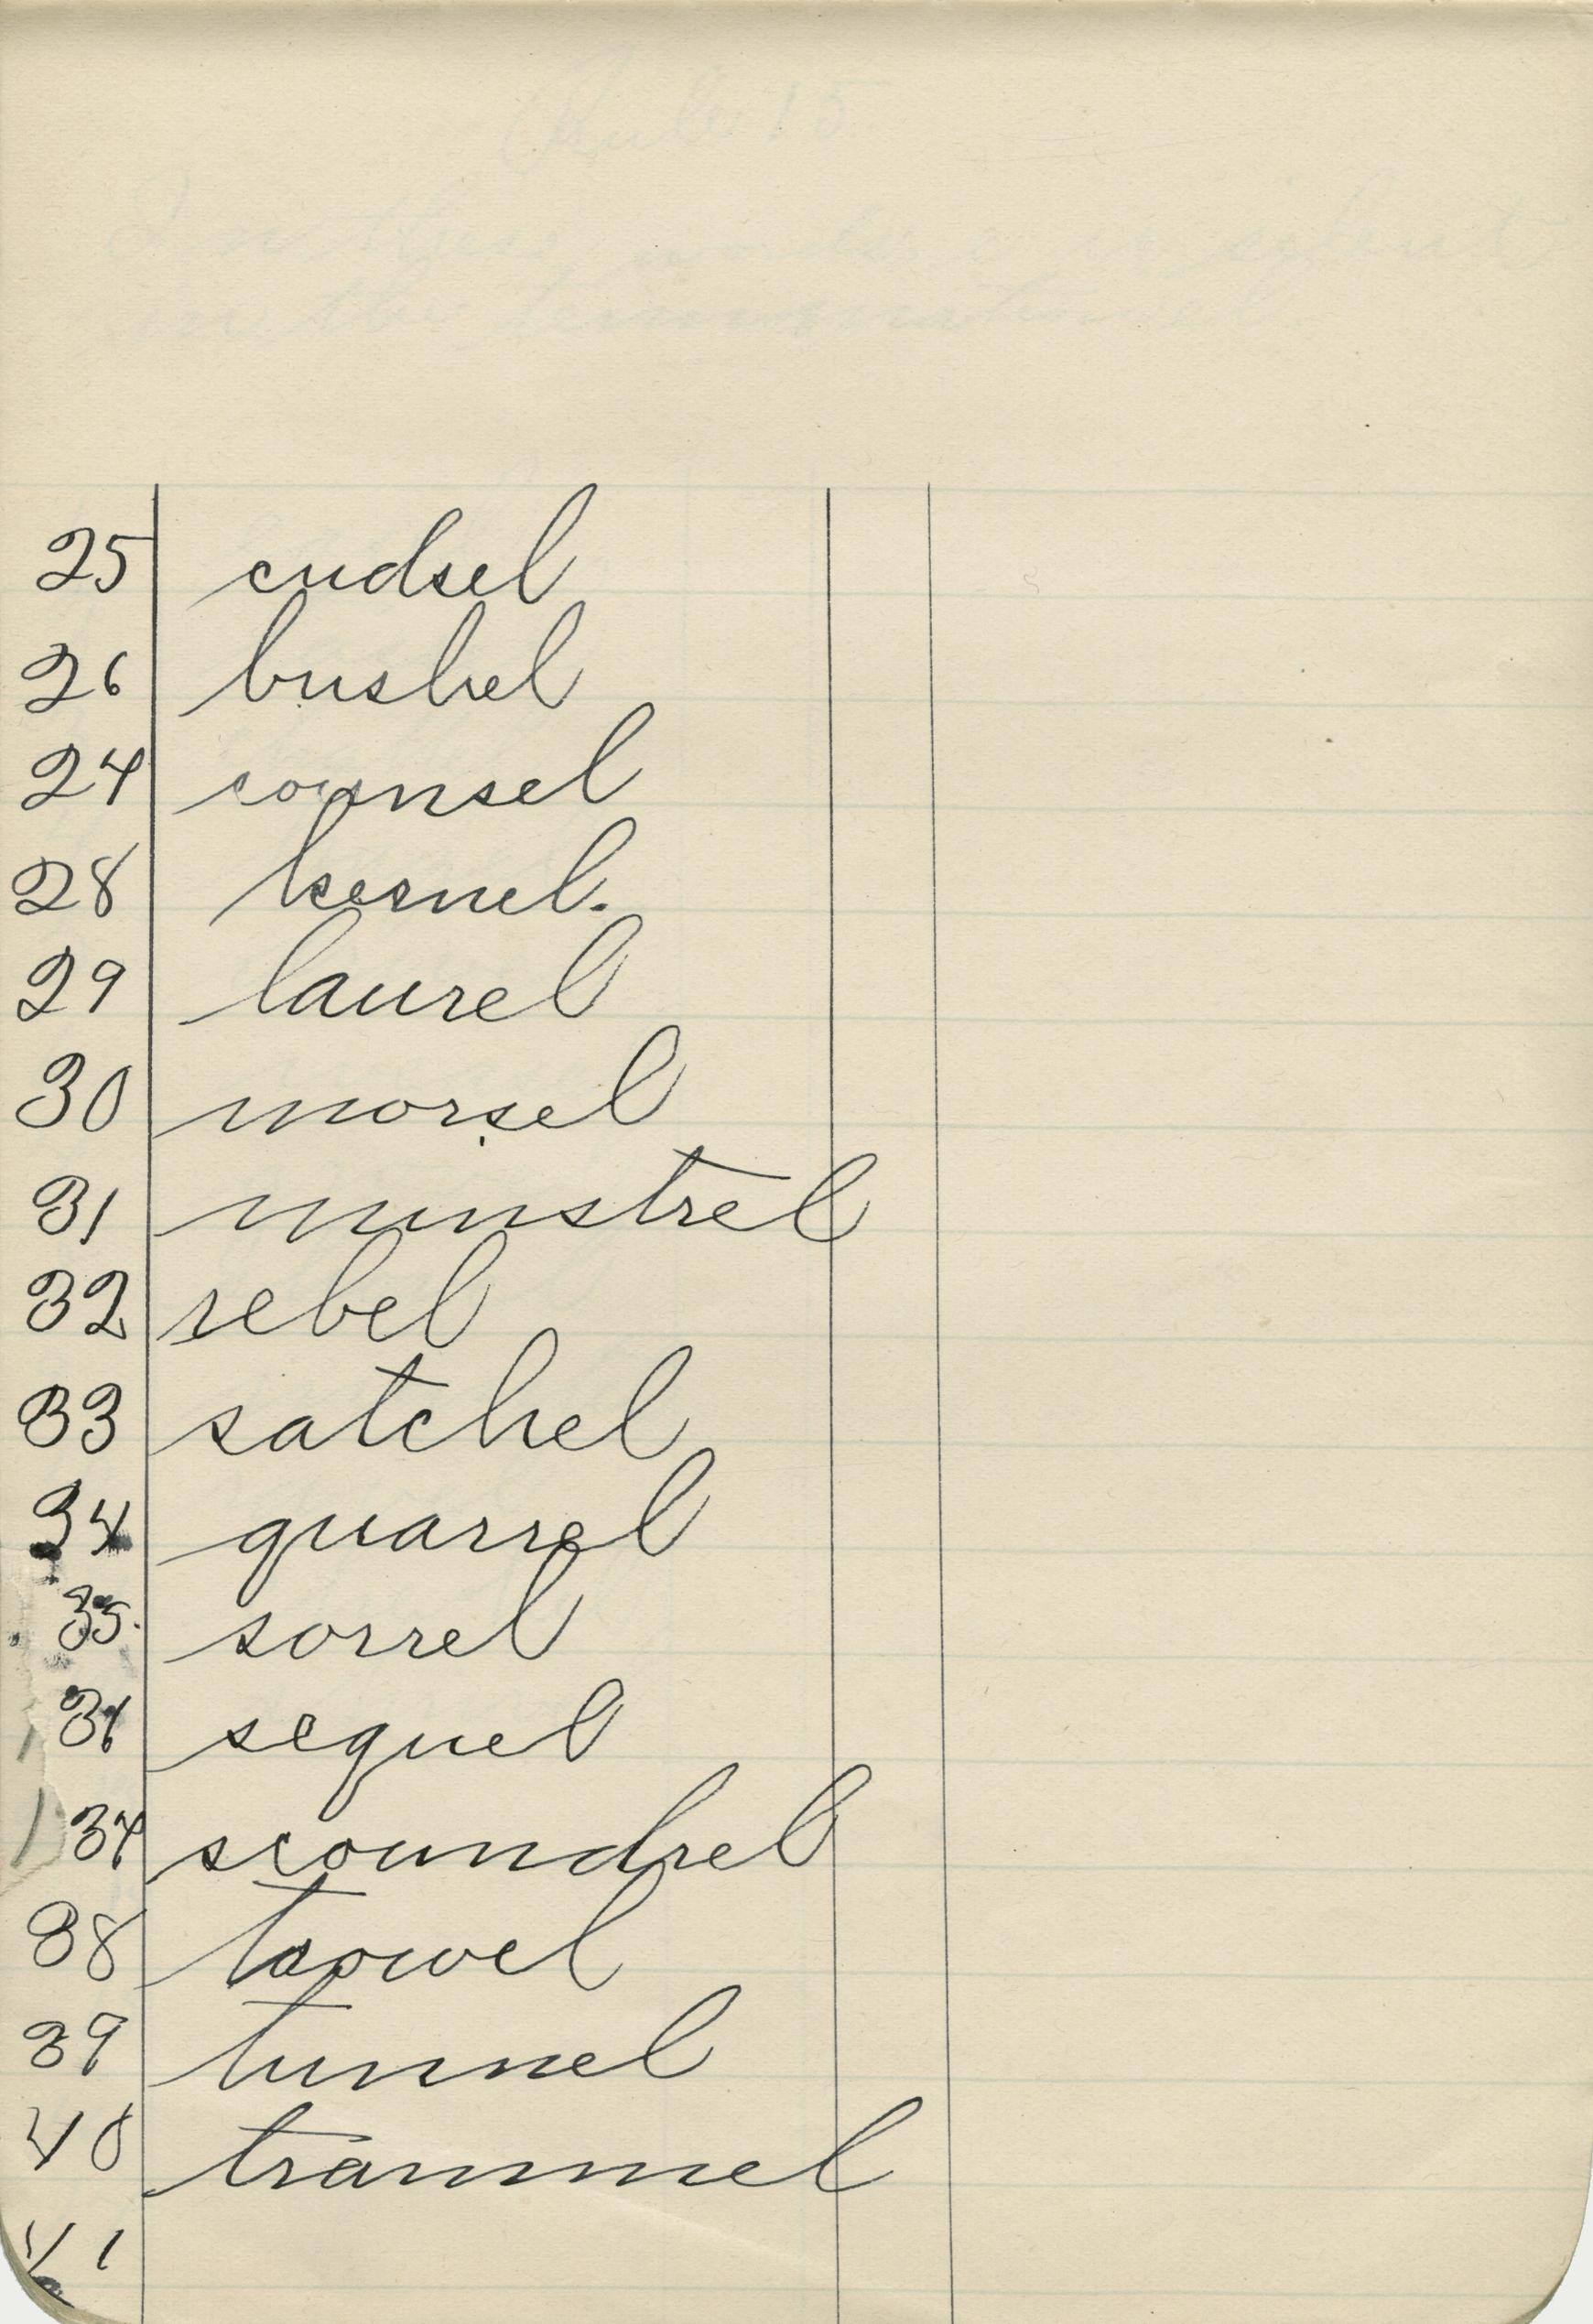 25 cudsel
26 bushel
27 counsel
28 kernel.
29 laurel
30 morsel
31 minstrel
32 rebel
33 satchel
34 quarrel
35. sorrel
36 sequel
37 scoundrel
38 trowel
39 tunnel
40 trammel
41